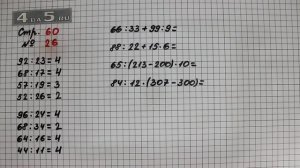 4 ДА 5.РУ
Стр. 60
№ 26
92:23=4
68:17=4
57:19=3
52:26=2
96:24=4
68:34=2
64:16=4
44:11=4
66:33+99:9=
88:22+15·6=
65:(213-200)·10=
84:12·(307-300)=